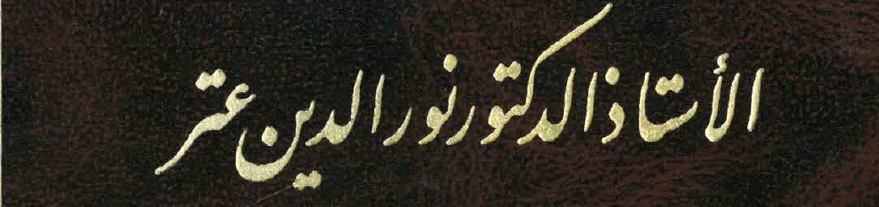 الأستاذ الدكتور نور الدين عتر